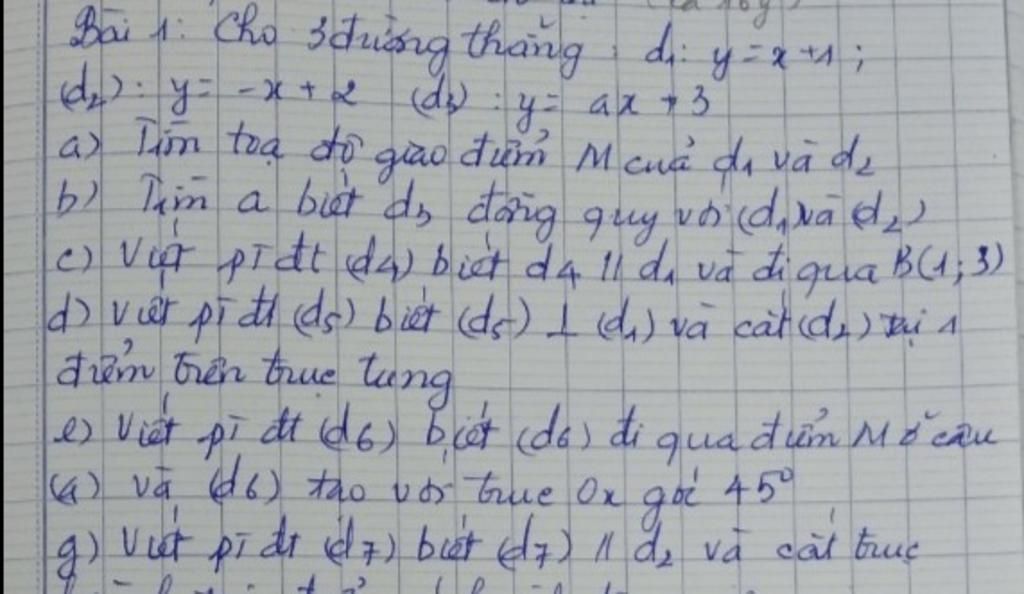 Bài 1: Cho 3 đường thẳng: d₁: y = x + 1;
(d₂): y = -x + 2 (d₃): y = ax + 3
a) Tìm toạ độ giao điểm M của d₁ và d₂
b) Tìm a biết d₃ đồng quy với (d₁) và (d₂)
c) Viết pt đt (d4) biết d4 // d₁ và đi qua B(1; 3)
d) Viết pt đt (d₅) biết (d₅) ⊥ (d₁) và cắt (d₂) tại 1
điểm trên trục tung
e) Viết pt đt (d6) biết (d6) đi qua điểm M ở câu
(a) và (d6) tạo với trục Ox góc 45°
g) Viết pt đt (d7) biết (d7) // d₂ và cắt trục